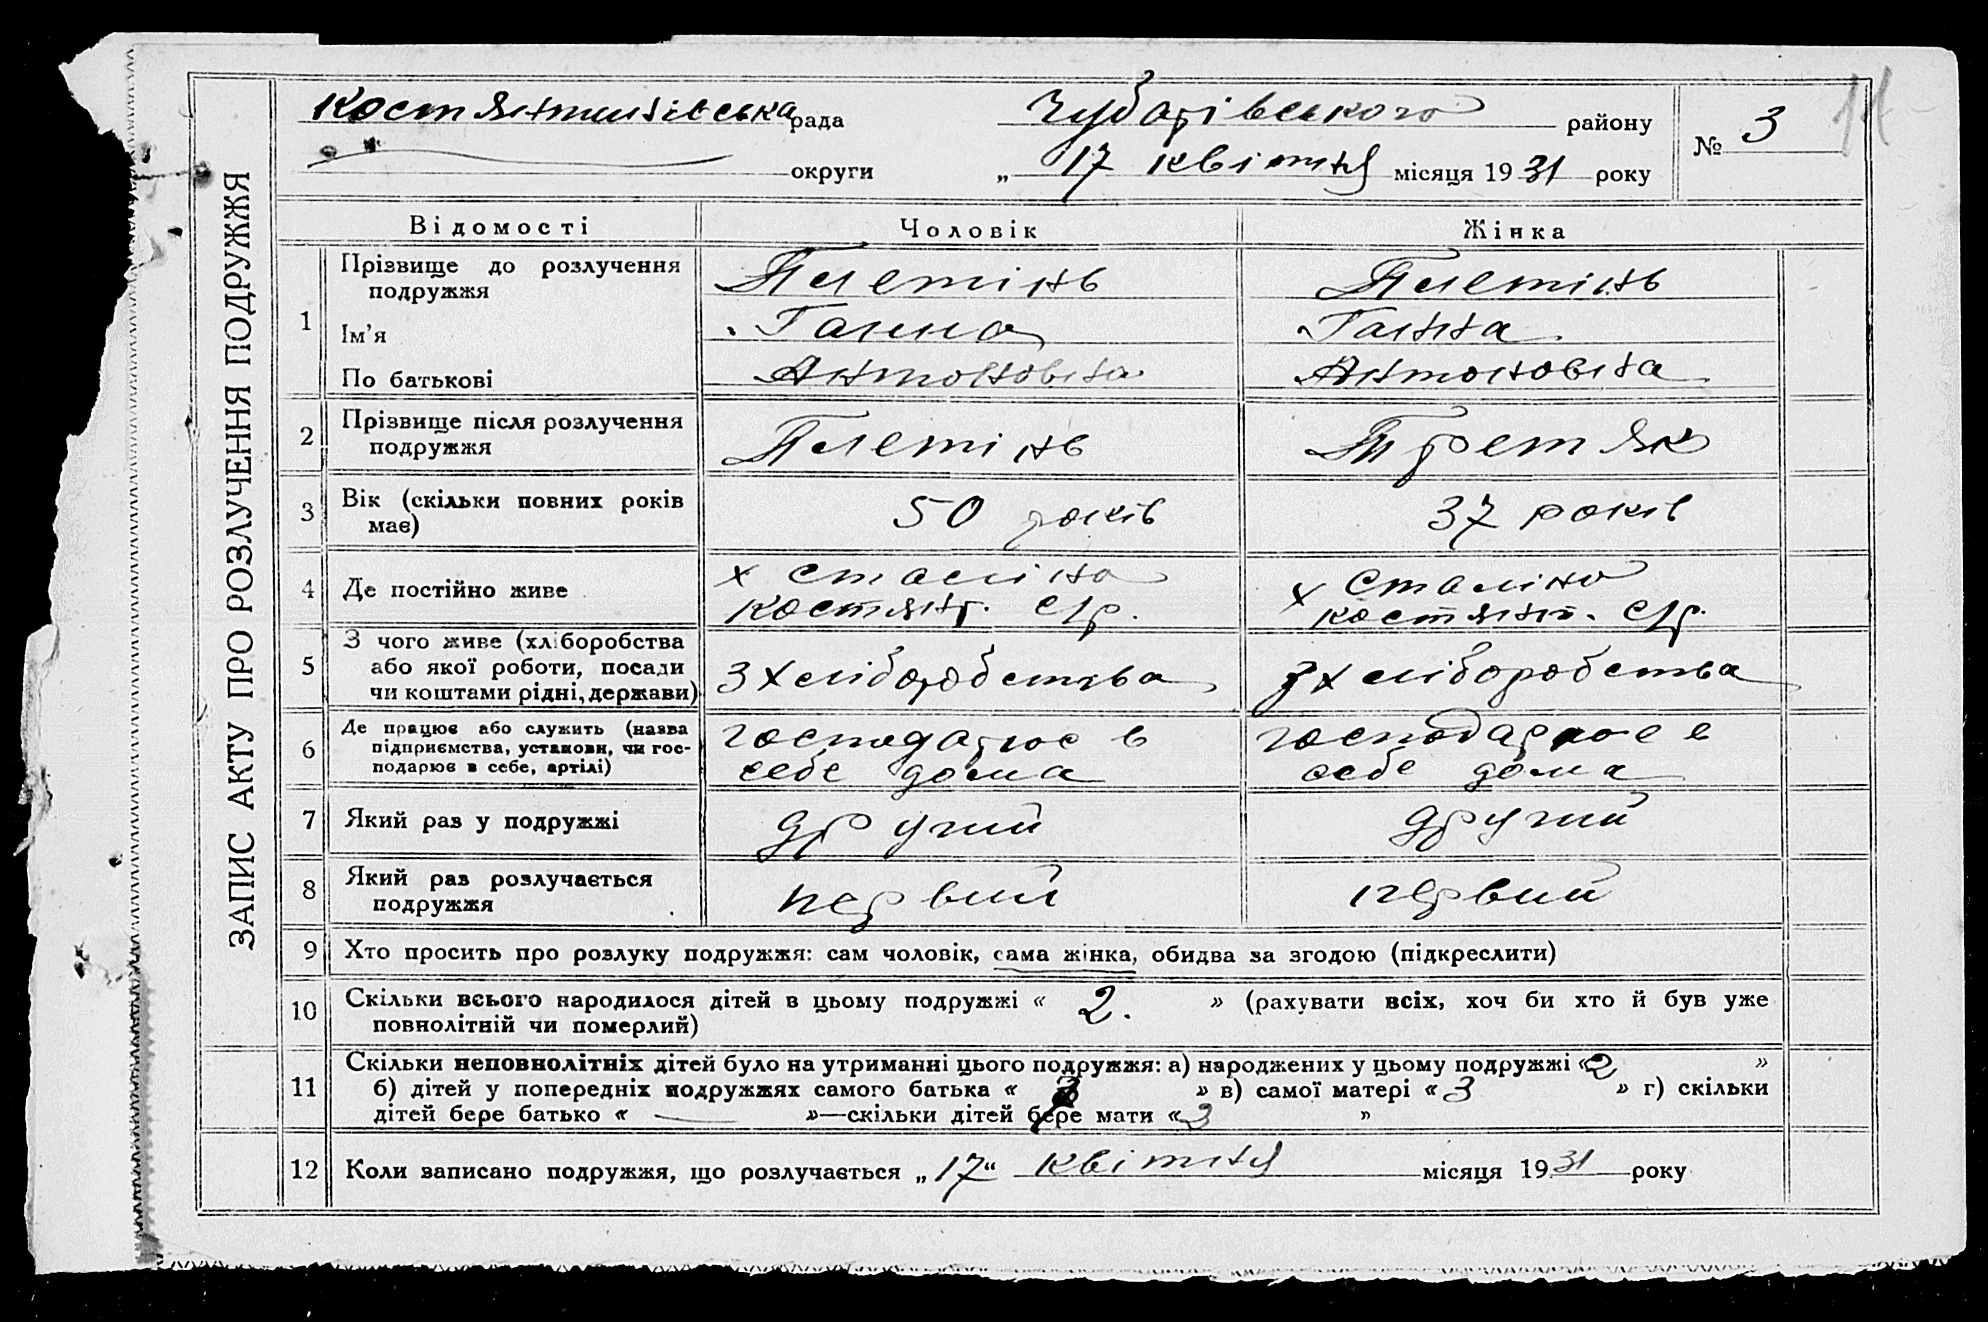 Костянтинівська рада Чубарівського району № 3
округи „ 17 квітня місяця 1931 року
ЗАПИС АКТУ ПРО РОЗЛУЧЕННЯ ПОДРУЖЖЯ
Відомості Чоловік Жінка
1 Прізвище до розлучення подружжя Плетінь Плетінь
Ім’я Ганна Ганна
По батькові Антоновна Антоновна
2 Прізвище після розлучення подружжя Плетінь Третяк
3 Вік (скільки повних років має) 50 років 37 років
4 Де постійно живе х Сталіно х Сталіно
Костянт. с/р. Костянт. с/р.
5 З чого живе (хліборобства
або якої роботи, посади З хліборобства З хліборобства
чи коштами рідні, держави)
6 Де працює або служить (назва господарює в господарює в
підприємства, установи, чи гос-
подарює в себе, артілі) себе дома себе дома
7 Який раз у подружжі другий другий
8 Який раз розлучається подружжя первий первий
9 Хто просить про розлуку подружжя: сам чоловік, сама жінка, обидва за згодою (підкреслити)
10 Скільки всього народилося дітей в цьому подружжі « 2. » (рахувати всіх, хоч би хто й був уже
повнолітній чи померлий)
11 Скільки неповнолітніх дітей було на утриманні цього подружжя: а) народжених у цьому подружжі «2 »
б) дітей у попередніх подружжях самого батька « » в) самої матері « 3 » г) скільки
дітей бере батько « — »—скільки дітей бере мати «2 »
12 Коли записано подружжя, що розлучається „17“ квітня місяця 1931 року